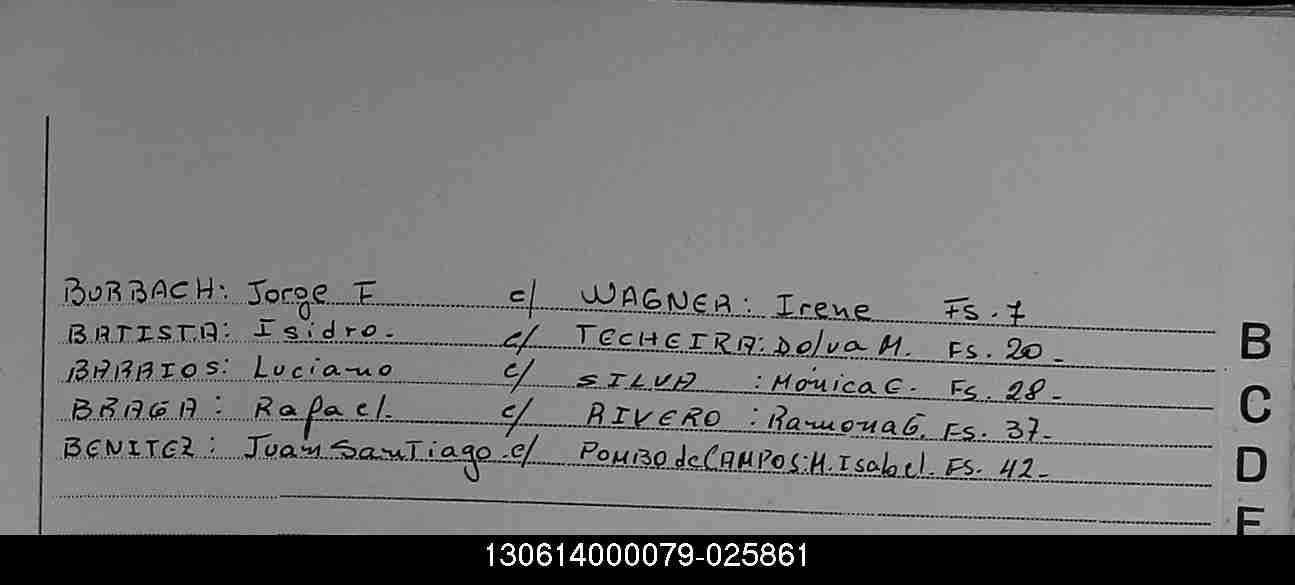 BURBACH: Jorge F c/ WAGNER: Irene Fs. 7
BATISTA: Isidro. c/ TECHEIRA: Dolva M. Fs. 20-
BARRIOS: Luciano c/ SILVA : Mónica C. Fs. 28-
BRAGA: Rafael. c/ RIVERO : Ramona G. Fs. 37-
BENITEZ: Juan Santiago. c/ POMBO de CAMPOS: M. Isabel. Fs. 42-
B
C
D
E
130614000079-025861